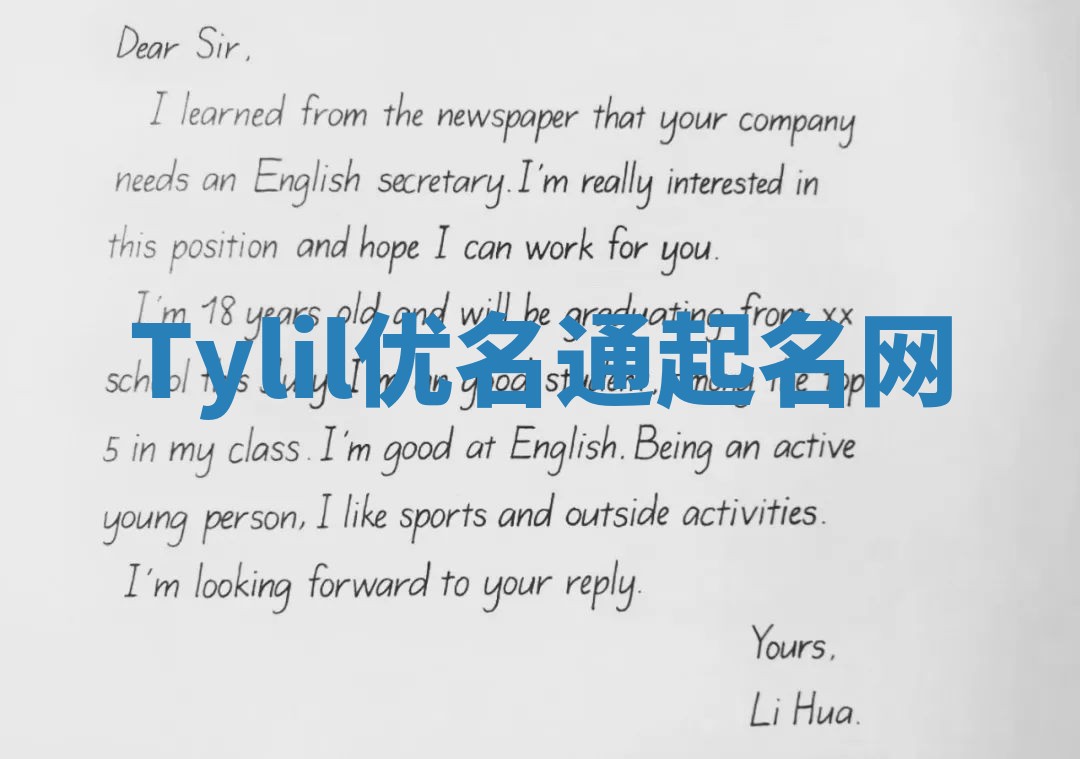 Dear Sir,
I learned from the newspaper that your company
needs an English secretary. I'm really interested in
this position and hope I can work for you.
I'm 18 years old and will be graduating from xx
Tylil优名通起名网
school this July. I'm an good student, among the top
5 in my class. I'm good at English. Being an active
young person, I like sports and outside activities.
I'm looking forward to your reply.
Yours,
Li Hua.